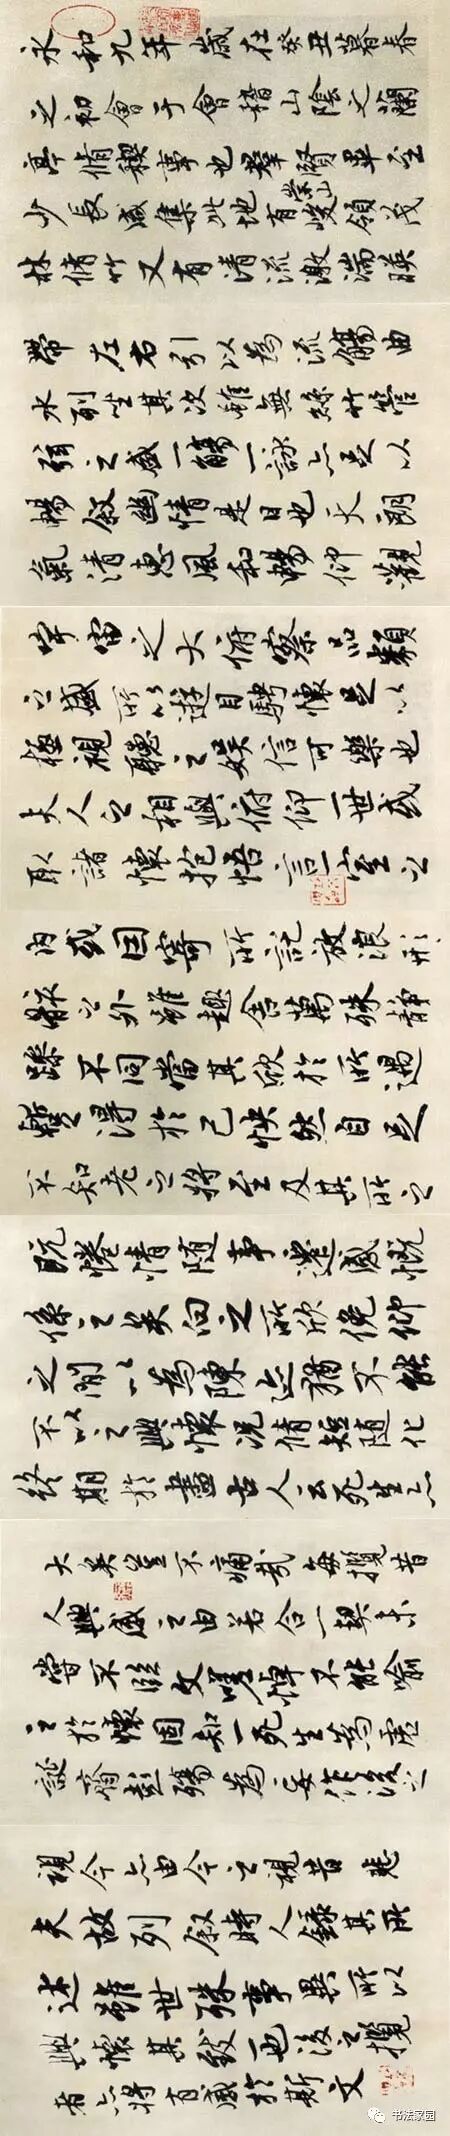 永和九年歲在癸丑暮春
之初會于會稽山陰之蘭
亭脩稧事也羣賢畢至
少長咸集此地有崇山峻領茂
林脩竹又有清流激湍暎
帶左右引以為流觴曲
水列坐其次雖無絲竹管
弦之盛一觴一詠亦足以
暢敘幽情是日也天朗
氣清惠風和暢仰觀
宇宙之大俯察品類
之盛所以遊目騁懷足以
極視聽之娛信可樂也
夫人之相與俯仰一世或
取諸懷抱悟言一室之
內或因寄所託放浪形
骸之外雖趣舍萬殊靜
躁不同當其欣於所遇
暫得於己怏然自足
不知老之將至及其所之
既惓情隨事遷感慨
係之矣向之所欣俛仰
之間以為陳迹猶不能
不以之興懷況脩短隨化
終期於盡古人云死生亦
大矣豈不痛哉每攬昔
人興感之由若合一契未
嘗不臨文嗟悼不能喻
之於懷固知一死生為虛
誕齊彭殤為妄作後之
視今亦由今之視昔悲
夫故列敘時人錄其所
述雖世殊事異所以
興懷其致一也後之攬
者亦將有感於斯文
书法家园